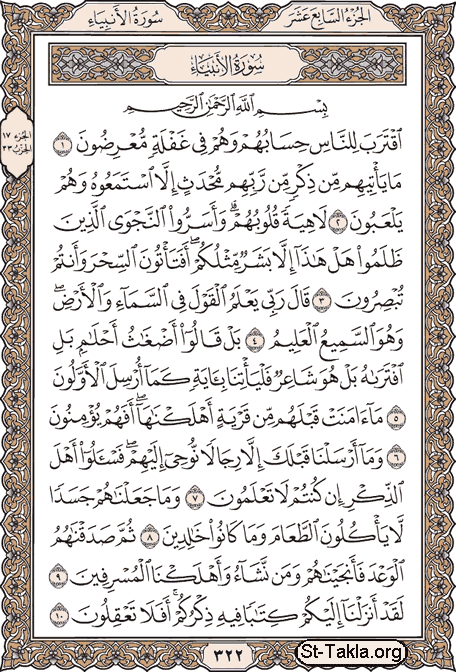 الجزء السابع عشر
سورة الأنبياء
سورة الأنبياء
بِسْمِ ٱللَّهِ ٱلرَّحْمَٰنِ ٱلرَّحِيمِ
ٱقْتَرَبَ لِلنَّاسِ حِسَابُهُمْ وَهُمْ فِى غَفْلَةٍ مُّعْرِضُونَ ١
مَا يَأْتِيهِم مِّن ذِكْرٍ مِّن رَّبِّهِم مُّحْدَثٍ إِلَّا ٱسْتَمَعُوهُ وَهُمْ
يَلْعَبُونَ ٢ لَاهِيَةً قُلُوبُهُمْ ۗ وَأَسَرُّوا۟ ٱلنَّجْوَى ٱلَّذِينَ
ظَلَمُوا۟ هَلْ هَٰذَآ إِلَّا بَشَرٌ مِّثْلُكُمْ ۖ أَفَتَأْتُونَ ٱلسِّحْرَ وَأَنتُمْ
تُبْصِرُونَ ٣ قَالَ رَبِّى يَعْلَمُ ٱلْقَوْلَ فِى ٱلسَّمَآءِ وَٱلْأَرْضِ ۖ
وَهُوَ ٱلسَّمِيعُ ٱلْعَلِيمُ ٤ بَلْ قَالُوٓا۟ أَضْغَٰثُ أَحْلَٰمٍۭ بَلِ
ٱفْتَرَىٰهُ بَلْ هُوَ شَاعِرٌ فَلْيَأْتِنَا بِـَٔايَةٍ كَمَآ أُرْسِلَ ٱلْأَوَّلُونَ
٥ مَآ ءَامَنَتْ قَبْلَهُم مِّن قَرْيَةٍ أَهْلَكْنَٰهَآ ۖ أَفَهُمْ يُؤْمِنُونَ
٦ وَمَآ أَرْسَلْنَا قَبْلَكَ إِلَّا رِجَالًا نُّوحِىٓ إِلَيْهِمْ ۖ فَسْـَٔلُوٓا۟ أَهْلَ
ٱلذِّكْرِ إِن كُنتُمْ لَا تَعْلَمُونَ ٧ وَمَا جَعَلْنَٰهُمْ جَسَدًا
لَّا يَأْكُلُونَ ٱلطَّعَامَ وَمَا كَانُوا۟ خَٰلِدِينَ ٨ ثُمَّ صَدَقْنَٰهُمُ
ٱلْوَعْدَ فَأَنجَيْنَٰهُمْ وَمَن نَّشَآءُ وَأَهْلَكْنَا ٱلْمُسْرِفِينَ ٩
لَقَدْ أَنزَلْنَآ إِلَيْكُمْ كِتَٰبًا فِيهِ ذِكْرُكُمْ ۖ أَفَلَا تَعْقِلُونَ ١٠
الجزء ١٧
الحزب ٣٣
٣٢٢
St-Takla.org